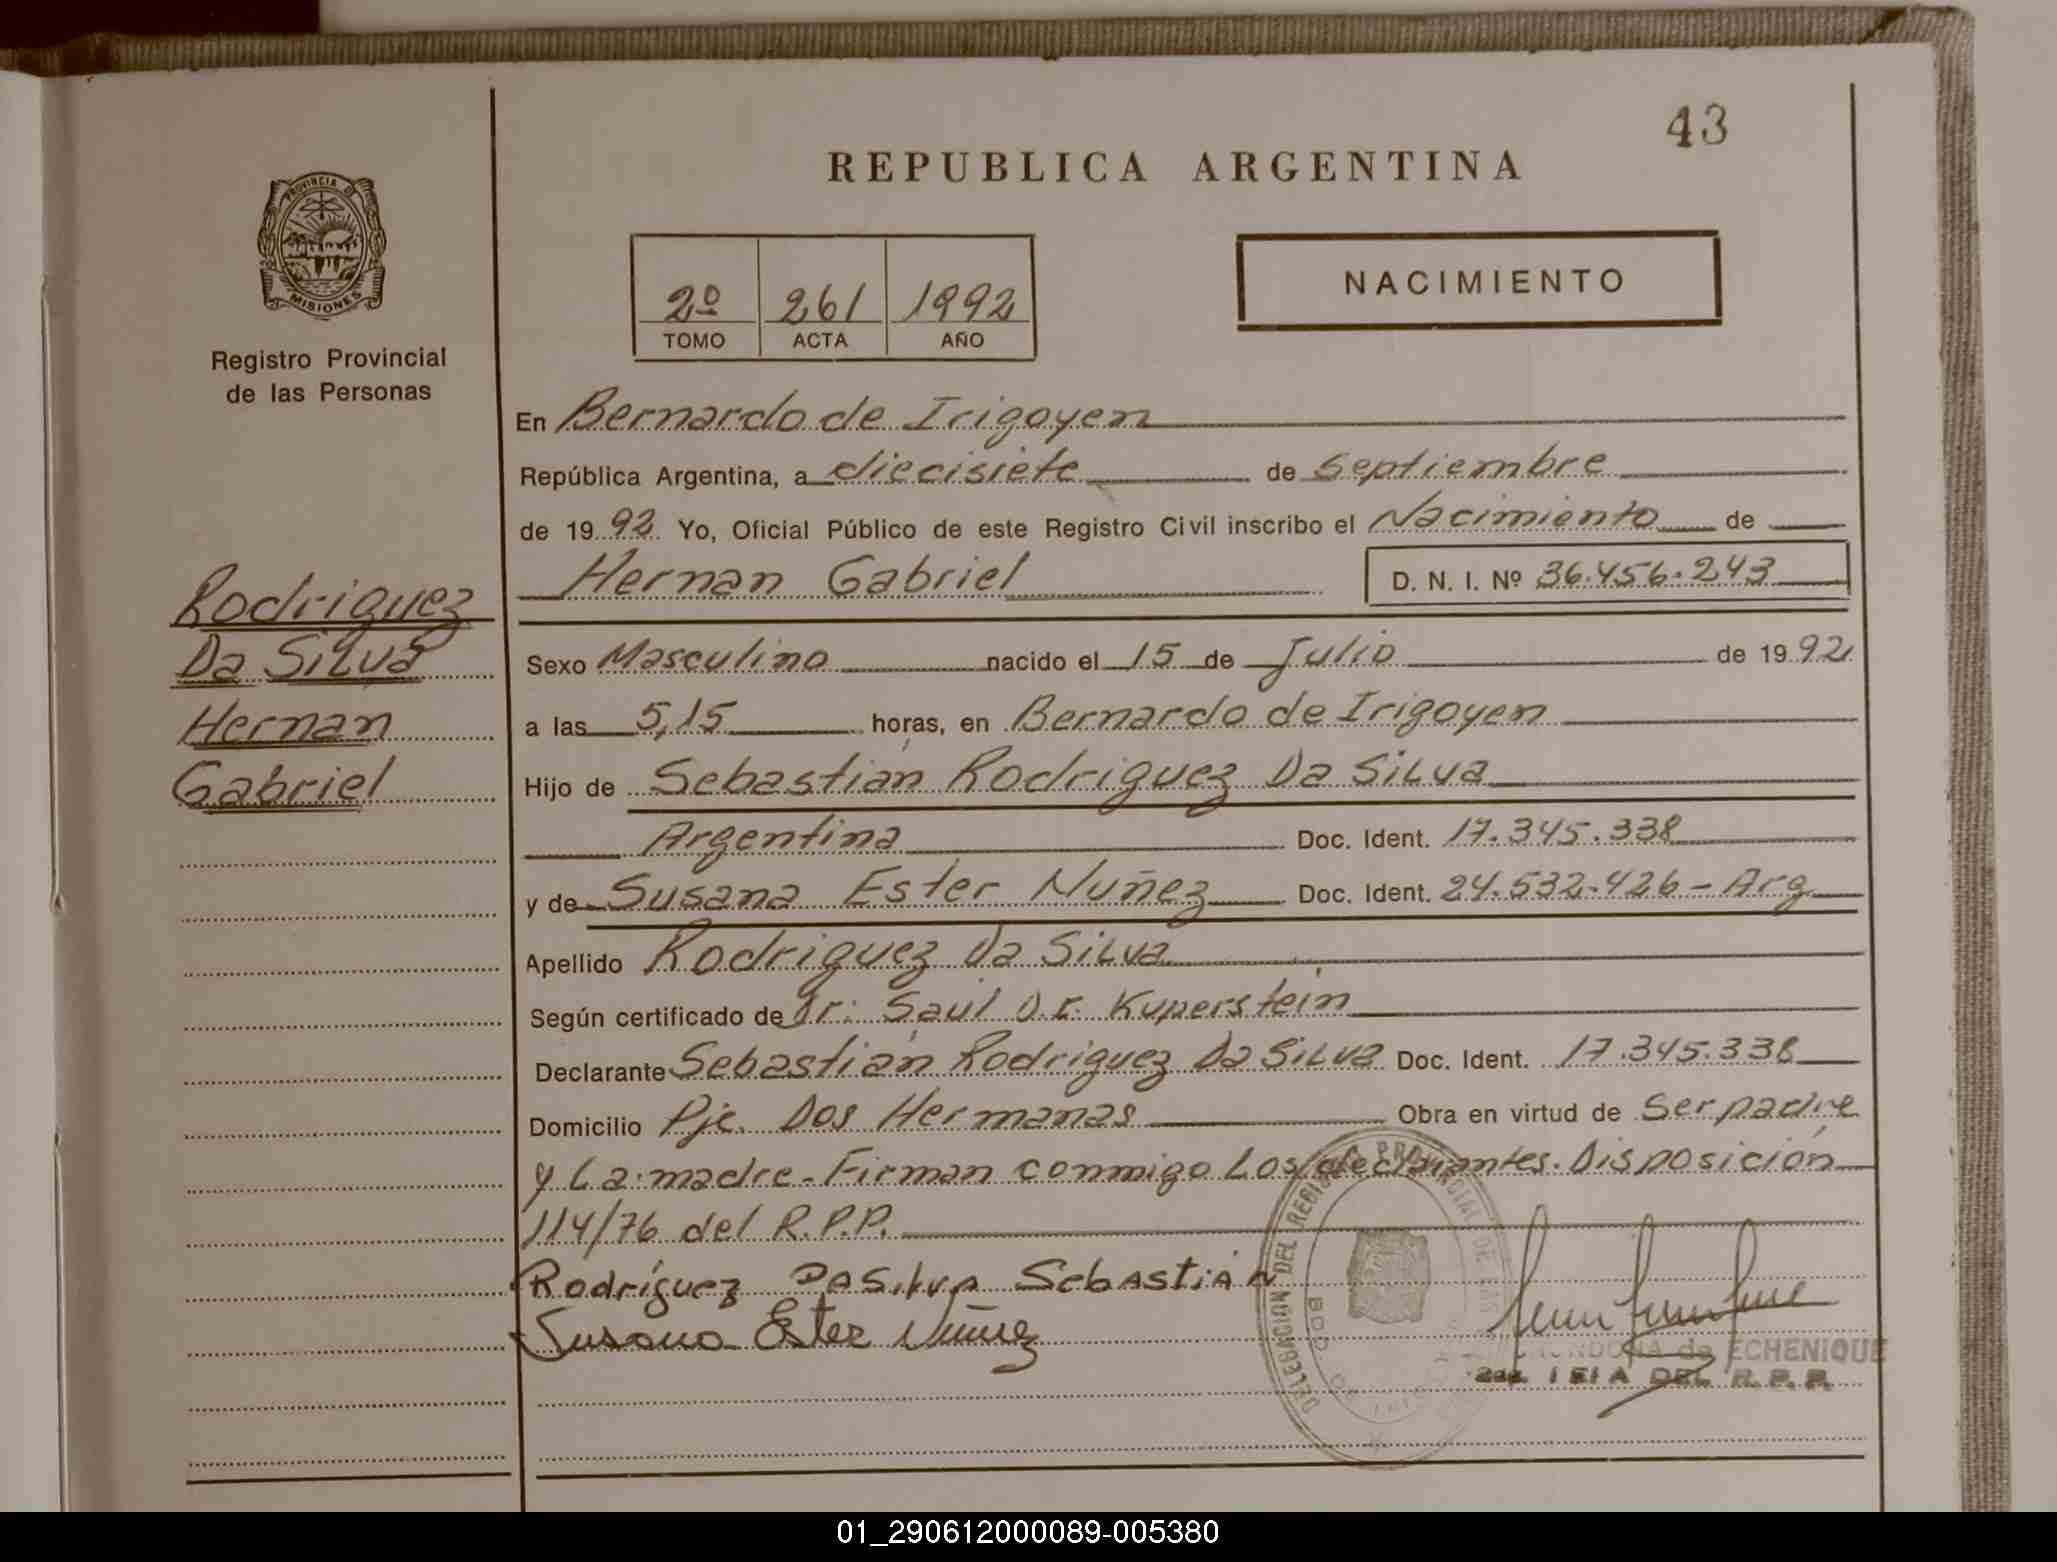 43
REPUBLICA ARGENTINA
PROVINCIA DE
MISIONES
Registro Provincial
de las Personas
2º 261 1992
TOMO ACTA AÑO
NACIMIENTO
En Bernardo de Irigoyen
República Argentina, a diecisiete de Septiembre
de 1992. Yo, Oficial Público de este Registro Civil inscribo el Nacimiento de
Hernan Gabriel D. N. I. Nº 36.456.243
Rodriguez
Da Silva
Hernan
Gabriel
Sexo Masculino nacido el 15 de Julio de 1992
a las 5,15 horas, en Bernardo de Irigoyen
Hijo de Sebastián Rodriguez Da Silva
Argentina Doc. Ident. 17.345.338
y de Susana Ester Nuñez Doc. Ident. 24.532.426 - Arg
Apellido Rodriguez Da Silva
Según certificado de Dr: Saúl Kuperstein
Declarante Sebastián Rodriguez Da Silva Doc. Ident. 17.345.338
Domicilio Pje. Dos Hermanas Obra en virtud de Ser padre
y La madre - Firman conmigo Los declarantes. Disposición
114/76 del R.P.P.
Rodríguez Da Silva Sebastián
Susana Ester Nuñez
DELEGACION DEL REGISTRO PROVINCIAL DE LAS
de ECHENIQUE
DEL R. P. P.
01_290612000089-005380